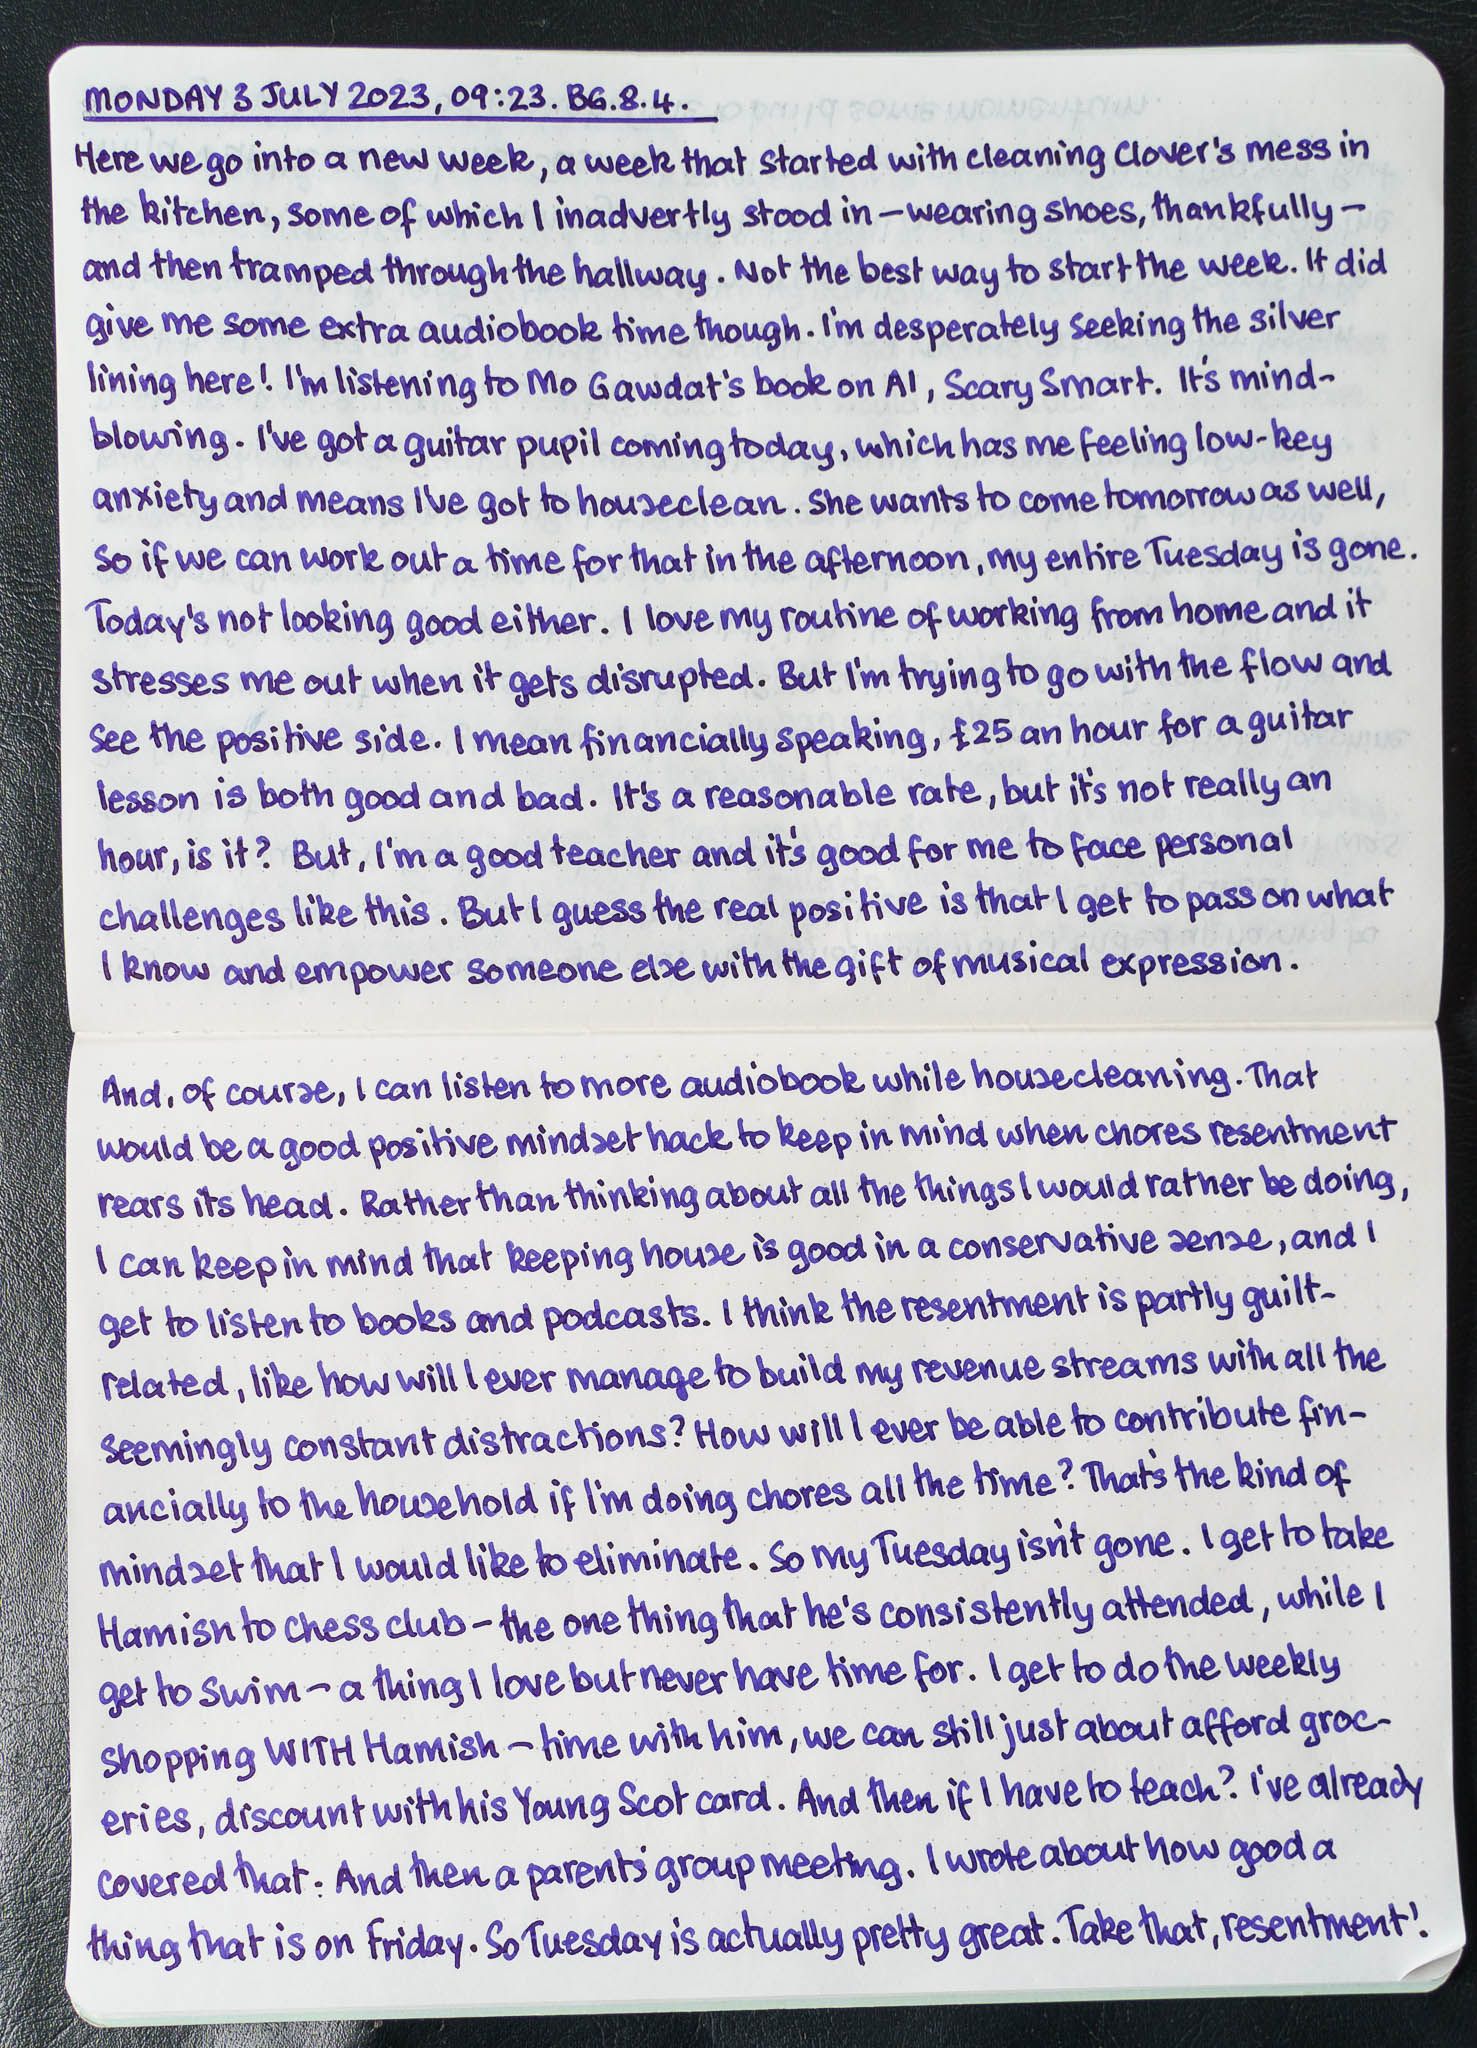 MONDAY 3 JULY 2023, 09:23. BG.8.4.
Here we go into a new week, a week that started with cleaning Clover's mess in
the kitchen, some of which I inadvertly stood in – wearing shoes, thankfully –
and then tramped through the hallway. Not the best way to start the week. It did
give me some extra audiobook time though. I'm desperately seeking the silver
lining here! I'm listening to Mo Gawdat's book on AI, Scary Smart. It's mind-
blowing. I've got a guitar pupil coming today, which has me feeling low-key
anxiety and means I've got to houseclean. She wants to come tomorrow as well,
so if we can work out a time for that in the afternoon, my entire Tuesday is gone.
Today's not looking good either. I love my routine of working from home and it
stresses me out when it gets disrupted. But I'm trying to go with the flow and
see the positive side. I mean financially speaking, £25 an hour for a guitar
lesson is both good and bad. It's a reasonable rate, but it's not really an
hour, is it? But, I'm a good teacher and it's good for me to face personal
challenges like this. But I guess the real positive is that I get to pass on what
I know and empower someone else with the gift of musical expression.
And, of course, I can listen to more audiobook while housecleaning. That
would be a good positive mindset hack to keep in mind when chores resentment
rears its head. Rather than thinking about all the things I would rather be doing,
I can keep in mind that keeping house is good in a conservative sense, and I
get to listen to books and podcasts. I think the resentment is partly guilt-
related, like how will I ever manage to build my revenue streams with all the
seemingly constant distractions? How will I ever be able to contribute fin-
ancially to the household if I'm doing chores all the time? That's the kind of
mindset that I would like to eliminate. So my Tuesday isn't gone. I get to take
Hamish to chess club – the one thing that he's consistently attended, while I
get to swim – a thing I love but never have time for. I get to do the weekly
shopping WITH Hamish – time with him, we can still just about afford groc-
eries, discount with his Young Scot card. And then if I have to teach? I've already
covered that. And then a parents' group meeting. I wrote about how good a
thing that is on Friday. So Tuesday is actually pretty great. Take that, resentment!